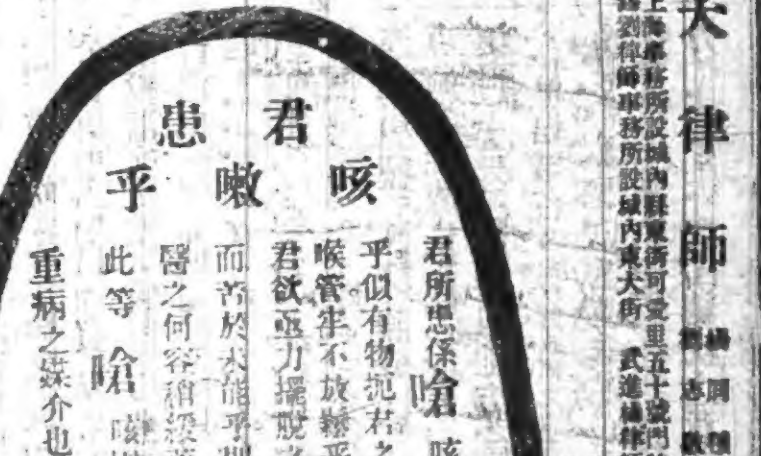 大律師
上海事務所設城內縣東街可愛里五十號門
劉律師事務所設城內東大街 武進楊律師
君患
咳嗽乎
君所患係嗆咳
乎似有物扼君之
喉管牢不放鬆乎
君欲亟力擺脫
而苦於未能乎
醫之何容稍緩
此等嗆咳
重病之媒介也